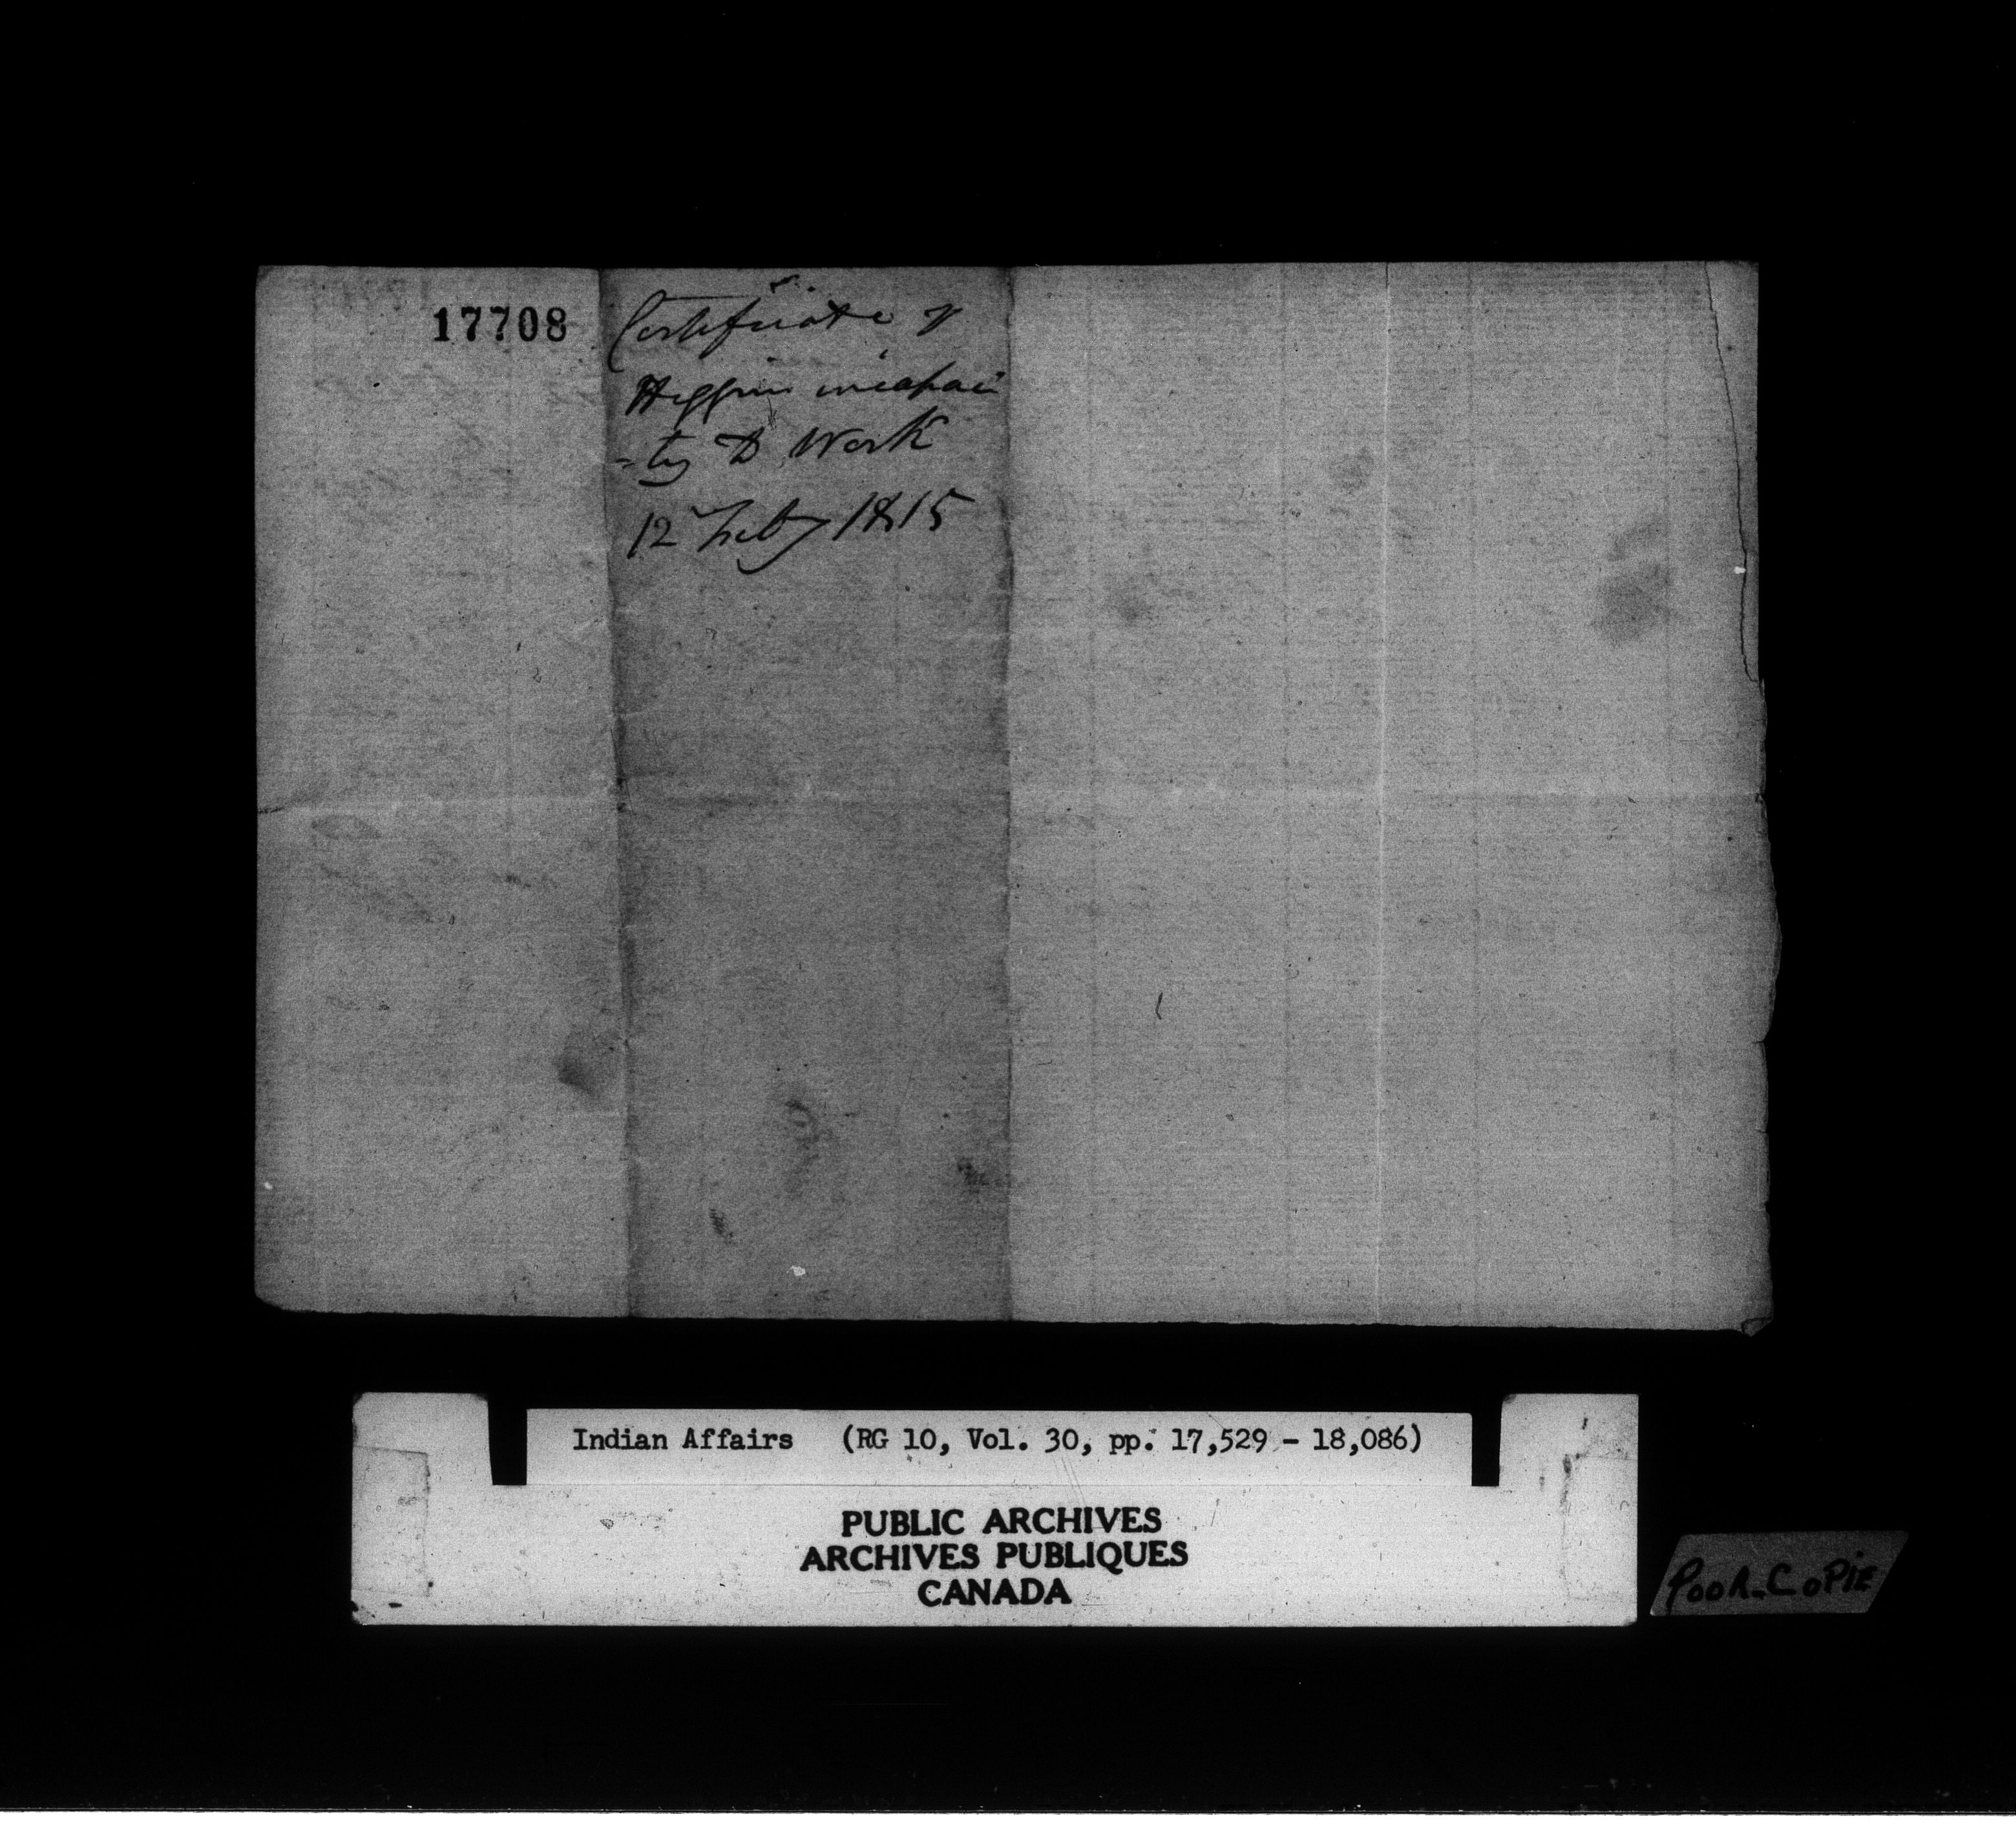 17708
Certificate of
Higgins incapaci
-ty to Work
12 Feby 1815
Indian Affairs (RG 10, Vol. 30, pp. 17,529 - 18,086)
PUBLIC ARCHIVES
ARCHIVES PUBLIQUES
CANADA
POOR-COPIE